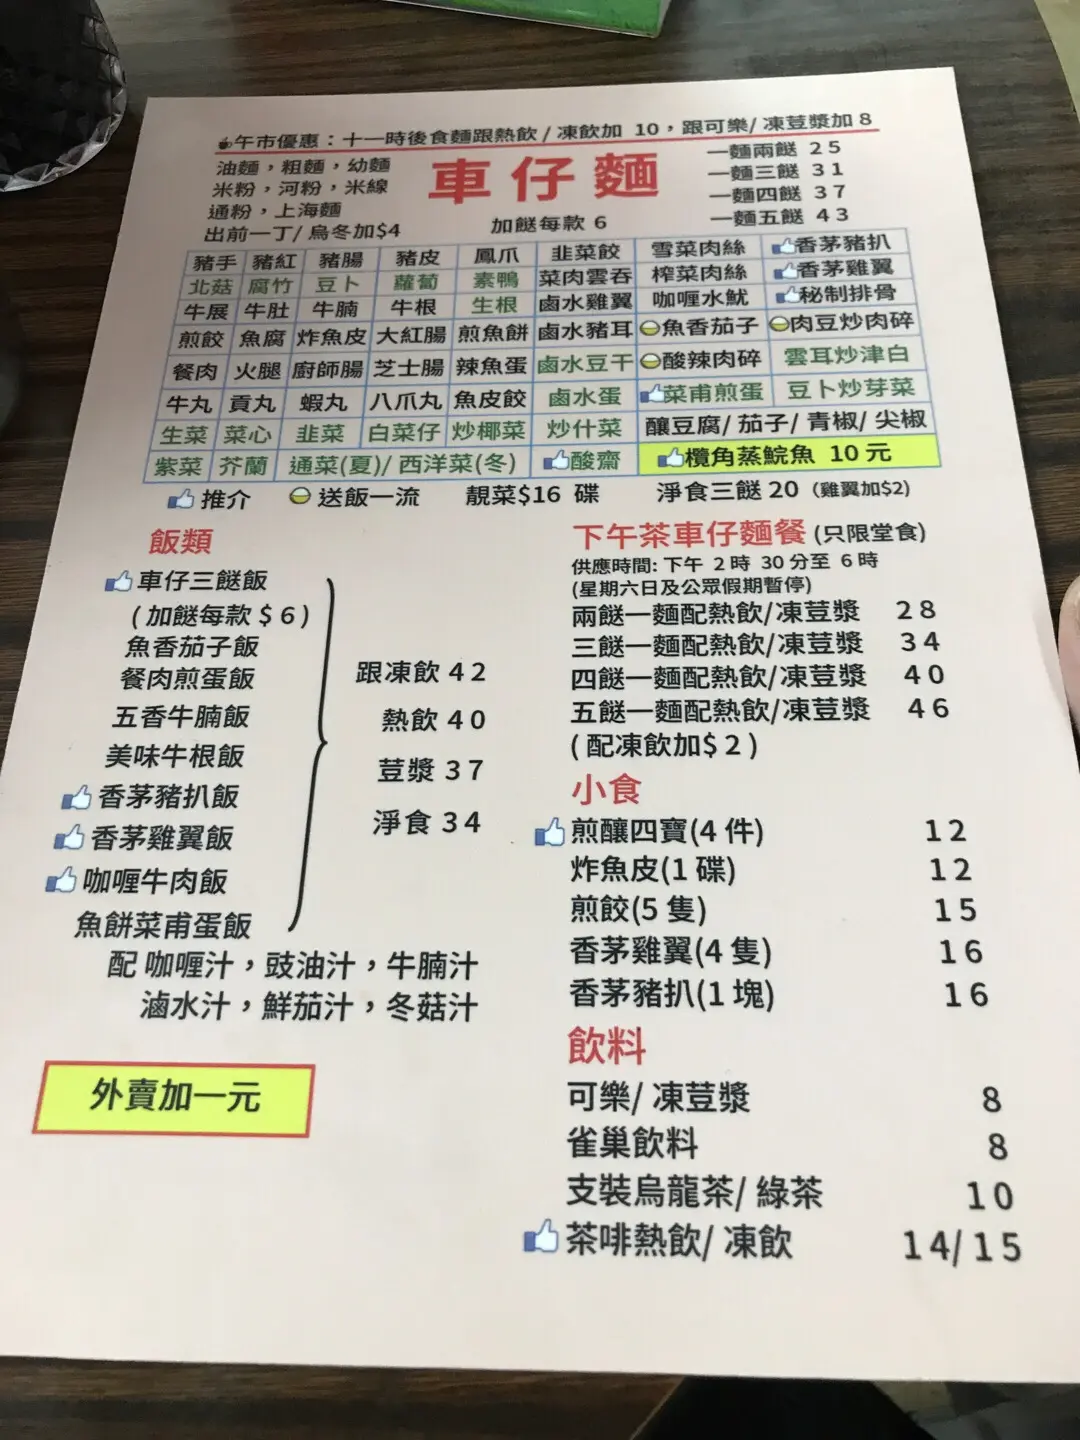 午市優惠：十一時後食麵跟熱飲 / 凍飲加 10，跟可樂/ 凍荳漿加 8
油麵，粗麵，幼麵
米粉，河粉，米線
通粉，上海麵
出前一丁/ 烏冬加$4
車仔麵
加餸每款 6
一麵兩餸 25
一麵三餸 31
一麵四餸 37
一麵五餸 43
豬手 豬紅 豬腸 豬皮 鳳爪 韭菜餃 雪菜肉絲 香茅豬扒
北菇 腐竹 豆卜 蘿蔔 素鴨 菜肉雲吞 榨菜肉絲 香茅雞翼
牛展 牛肚 牛腩 牛根 生根 鹵水雞翼 咖喱水魷 秘制排骨
煎餃 魚腐 炸魚皮 大紅腸 煎魚餅 鹵水豬耳 魚香茄子 肉豆炒肉碎
餐肉 火腿 廚師腸 芝士腸 辣魚蛋 鹵水豆干 酸辣肉碎 雲耳炒津白
牛丸 貢丸 蝦丸 八爪丸 魚皮餃 鹵水蛋 菜甫煎蛋 豆卜炒芽菜
生菜 菜心 韭菜 白菜仔 炒椰菜 炒什菜 釀豆腐/ 茄子/ 青椒/ 尖椒
紫菜 芥蘭 通菜(夏)/ 西洋菜(冬) 酸齋 欖角蒸鯇魚 10 元
推介 送飯一流 靚菜$16 碟 淨食三餸 20 (雞翼加$2)
飯類
車仔三餸飯
(加餸每款 $ 6)
魚香茄子飯
餐肉煎蛋飯
五香牛腩飯
美味牛根飯
香茅豬扒飯
香茅雞翼飯
咖喱牛肉飯
魚餅菜甫蛋飯
跟凍飲 42
熱飲 40
荳漿 37
淨食 34
配 咖喱汁，豉油汁，牛腩汁
滷水汁，鮮茄汁，冬菇汁
外賣加一元
下午茶車仔麵餐 (只限堂食)
供應時間: 下午 2 時 30 分至 6 時
(星期六日及公眾假期暫停)
兩餸一麵配熱飲/凍荳漿 28
三餸一麵配熱飲/凍荳漿 34
四餸一麵配熱飲/凍荳漿 40
五餸一麵配熱飲/凍荳漿 46
(配凍飲加$ 2)
小食
煎釀四寶(4 件) 12
炸魚皮(1 碟) 12
煎餃(5 隻) 15
香茅雞翼(4 隻) 16
香茅豬扒(1 塊) 16
飲料
可樂/ 凍荳漿 8
雀巢飲料 8
支裝烏龍茶/ 綠茶 10
茶啡熱飲/ 凍飲 14/15